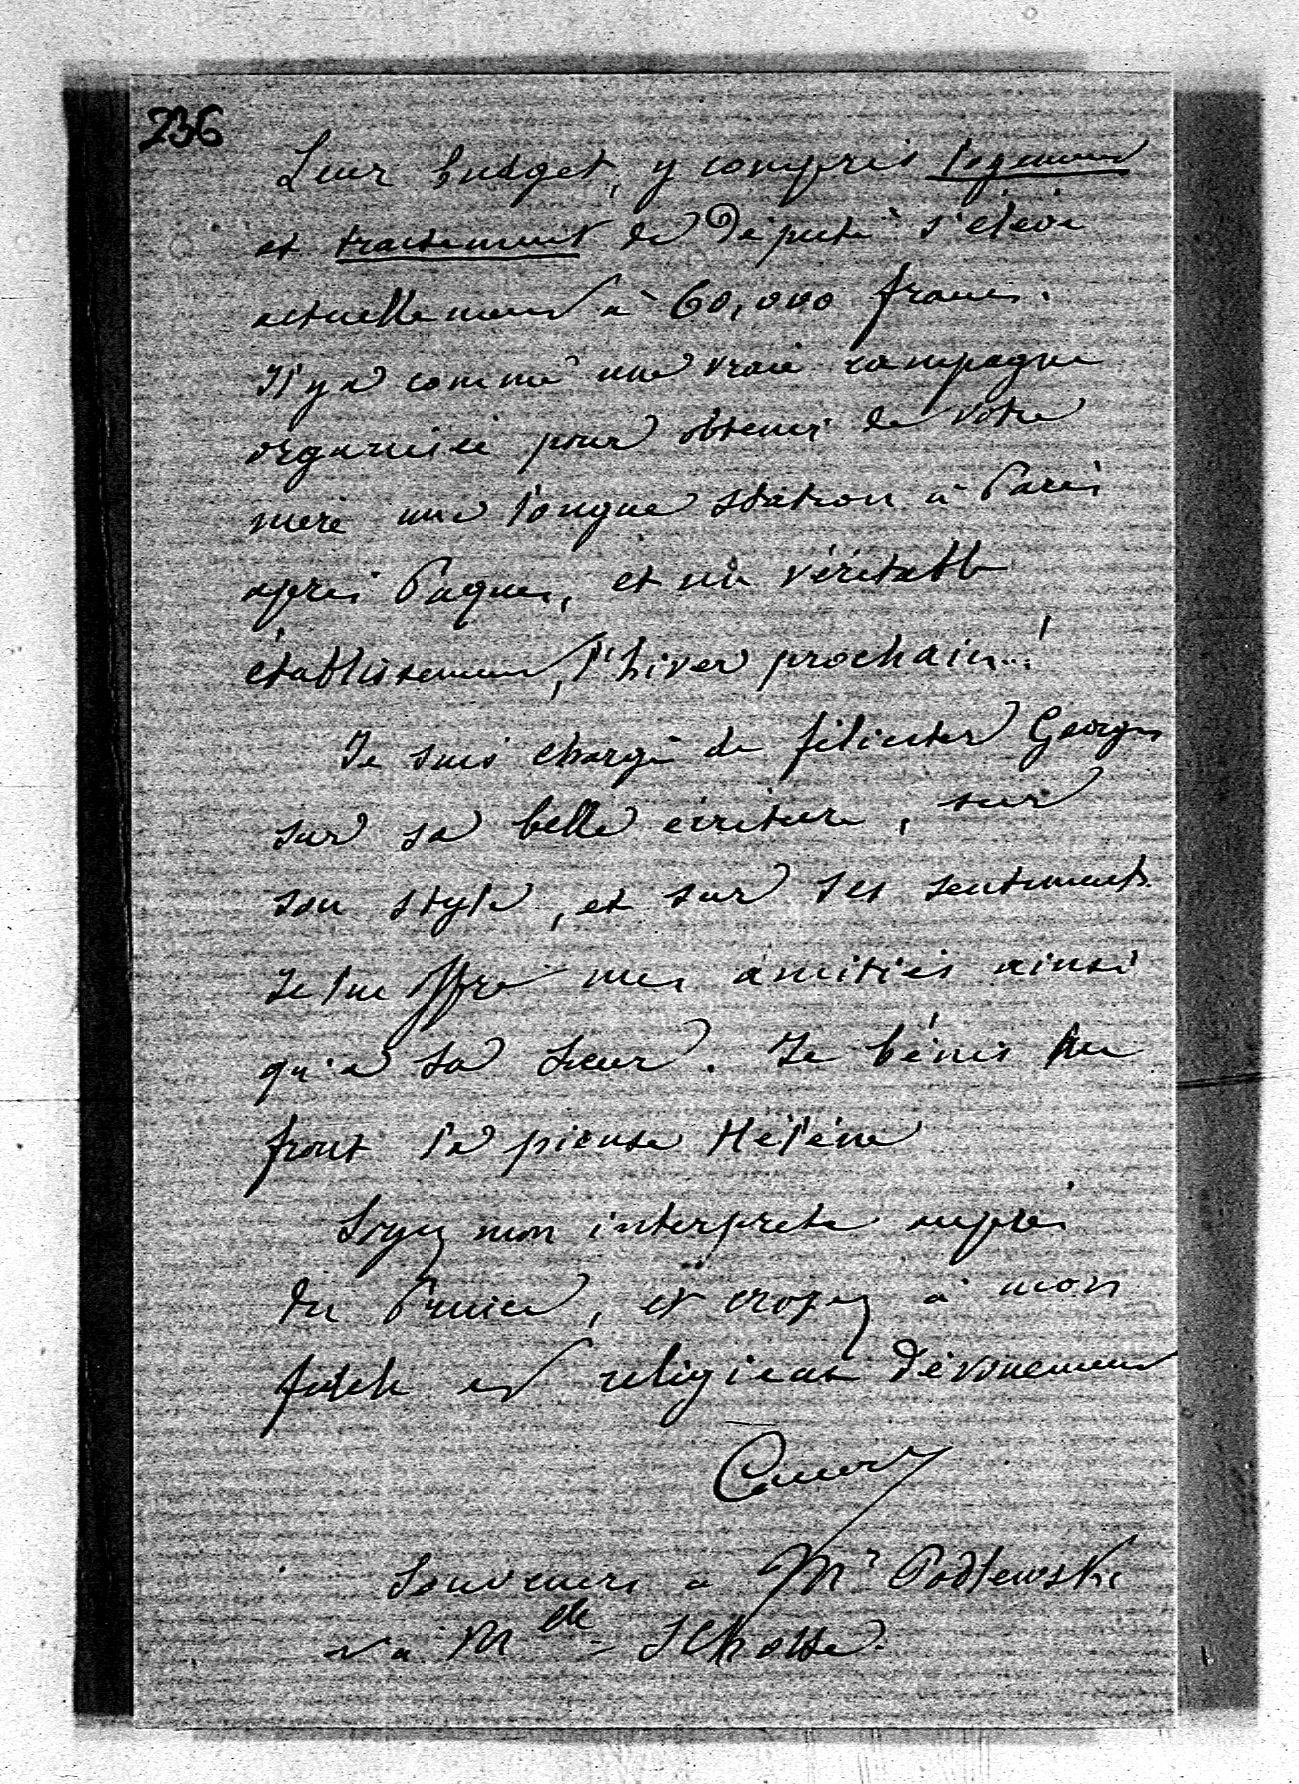 236
Leur budget, y compris logement
et traitement de député s'élève
actuellement à 60,000 francs.
Il y a comme une vraie campagne
organisée pour obtenir de votre
mère une longue station à Paris
après Pâques, et un véritable
établissement, l'hiver prochain..!
Je suis chargé de féliciter Georges
sur sa belle écriture, sur
son style, et sur ses sentiments.
Je lui offre mes amitiés ainsi
qu'à sa sœur. Je bénis au
front la pieuse Hélène
Soyez mon interprète auprès
du Prince, et croyez à mon
fidèle et religieux dévouement
Souvenirs à Mr Podlewski
et à Melle